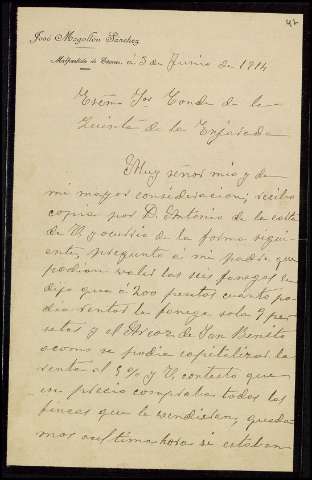 47
José Mogollón Sánchez
Malpartida de Cáceres á 3 de Junio de 1914
Excmo Sor Conde de la
Quinta de la Enjarada
Muy señor mio y de
mi mayor consideracion; recibo
copia por D. Antonio de la carta
de V. y ocurrió de la forma sigui-
ente, pregunto á mi padre que
podian valer las seis fanegas
dijo que á 200 pesetas cuanto po-
dia rentar la fanega solo 9 pes-
setas y el Arroz de San Benito
como se podia capitalizar la
renta al 5 % y V. contesto que
en precio compraba todas las
fincas que le vendieran, queda-
mos á ultima hora si estaban